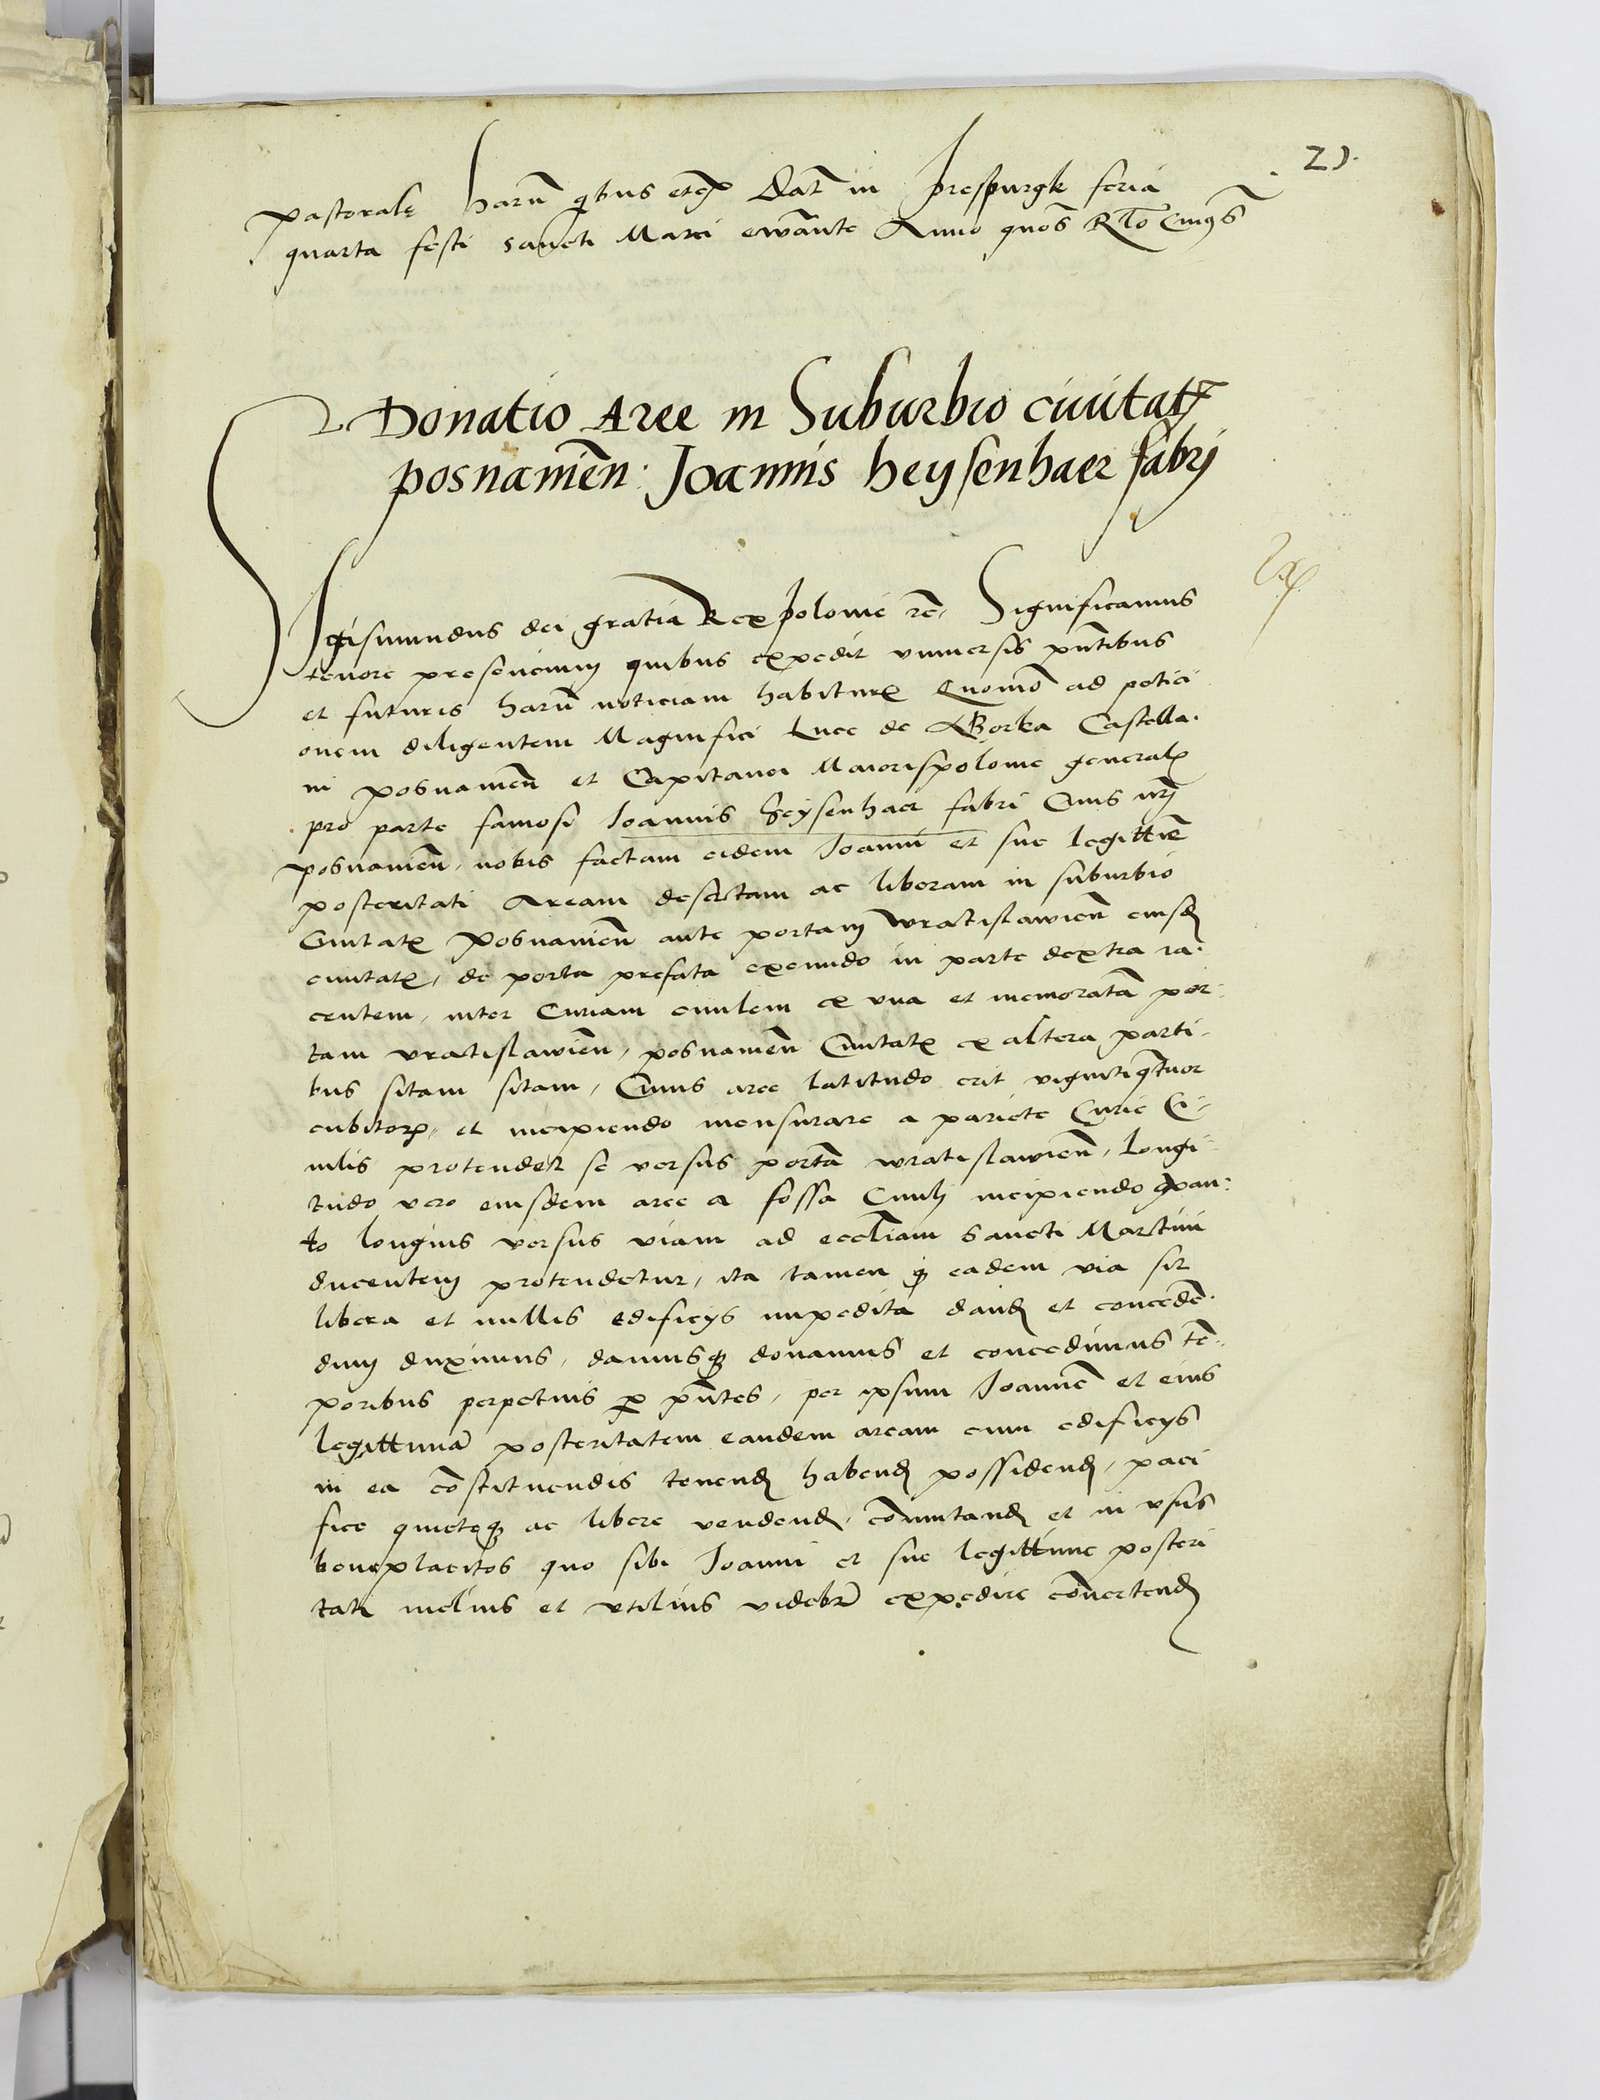 21.
pastorale harū qibus etc Dat in prespurgk feria
quarta festi sancti Marci ewāte Anno quo s̄ R̄to
Donatio Aree in Suburbio ciuitat
posnanieñ: Joannis heysenhaer fabrj
Sigismundus dei gratia Rex polonie rc, Significamus
tenore presencium quibus expedit vniuersis pñtibus
et futuris harū noticiam habitur Quomō ad petici
onem diligentem Magnifici Luce de Gorka Castella.
ni posnanieñ et Capitanei Maiorispolonie general
pro parte famosi Joannis heysenhaer fabri Ciuis nrj
posnanieñ, nobis factam eidem Joanni et sue legittīe
posteritati Aream desertam ac liberam in suburbio
Ciuitat posnanieñ ante portam wratislawieñ eiusd
ciuitat, de porta prefata exeundo in parte dextra ia-
centem, inter Curiam ciuilem ex vna et memoratā por-
tam vratislawieñ, posnanieñ Ciuitat ex altera parti-
bus sitam sitam, Cuius aree latitudo erit vigintiqtuor
cubitor, et incipiendo mensurare a pariete Curie Ci-
uilis protendet se versus portā wratislawieñ, longi-
tudo vero eiusdem aree a fossa Ciuilj incipiendo quan-
to longius versus viam ad eccliam Sancti Martini
ducentem protendetur, ita tamen q eadem via sit
libera et nullis edificys impedita dand et concedē-
dum duximus, damusq donamus et concedimus tē-
poribus perpetuis p pñtes, per ipsum Joannē et eius
legittimā posteritatem eandem aream cum edificys
in ea cōstituendis tenend habend possidend, paci
fice quieteq ac libere vendend, cōmutand et in vsus
beneplacitos quo sibi Joanni et sue legittime posteri
tati melius et vtilius videbr expedire cōuertend